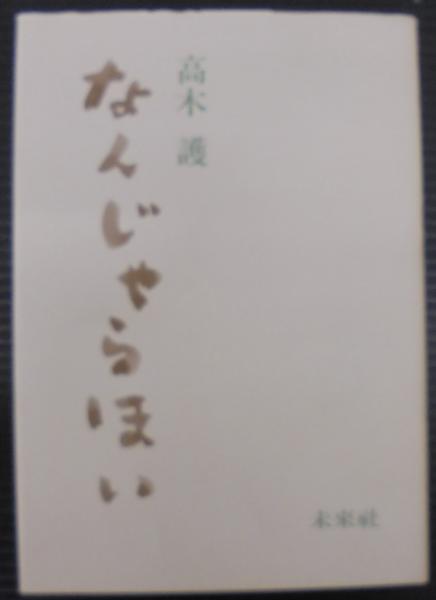 高木 護
なんじゃらほい
未来社